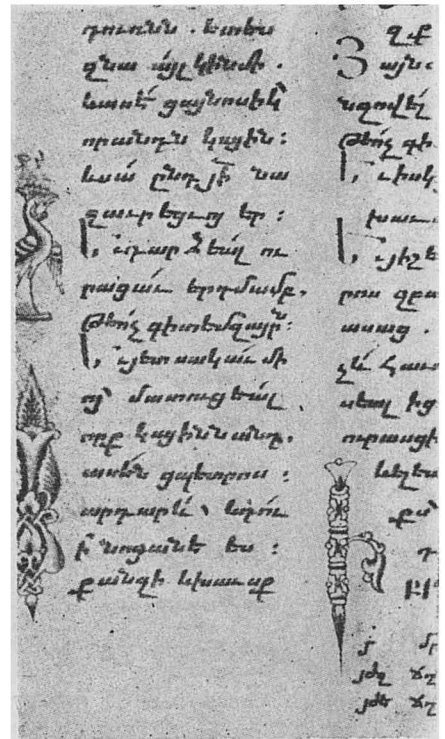 դուռնն . ետես
զնա այլ կին մի .
եւ ասէ ցայնոսիկ
որ անդն կային :
եւ սա ընդ յի նա
զաւրեցւոյ եր :
Եւ դարձեալ ու
րացաւ երդմամբ.
թէ ոչ գիտեմ զայրն :
Եւ յետ սակաւ մի
ոյ մատուցեալ
որք կային անդ.
ասեն ցպետրոս :
արդարեւ եւ դու
ի նոցանէ ես :
քանզի եւ խաւսք
զք
այն
նզովել
թէ ոչ գի
Եւ իսկ
խաւս
Եւ յիշե
րոս զբա
ասաց .
չեւ հաւ
սեալ իցէ
ուրասցի
եւ ելեա